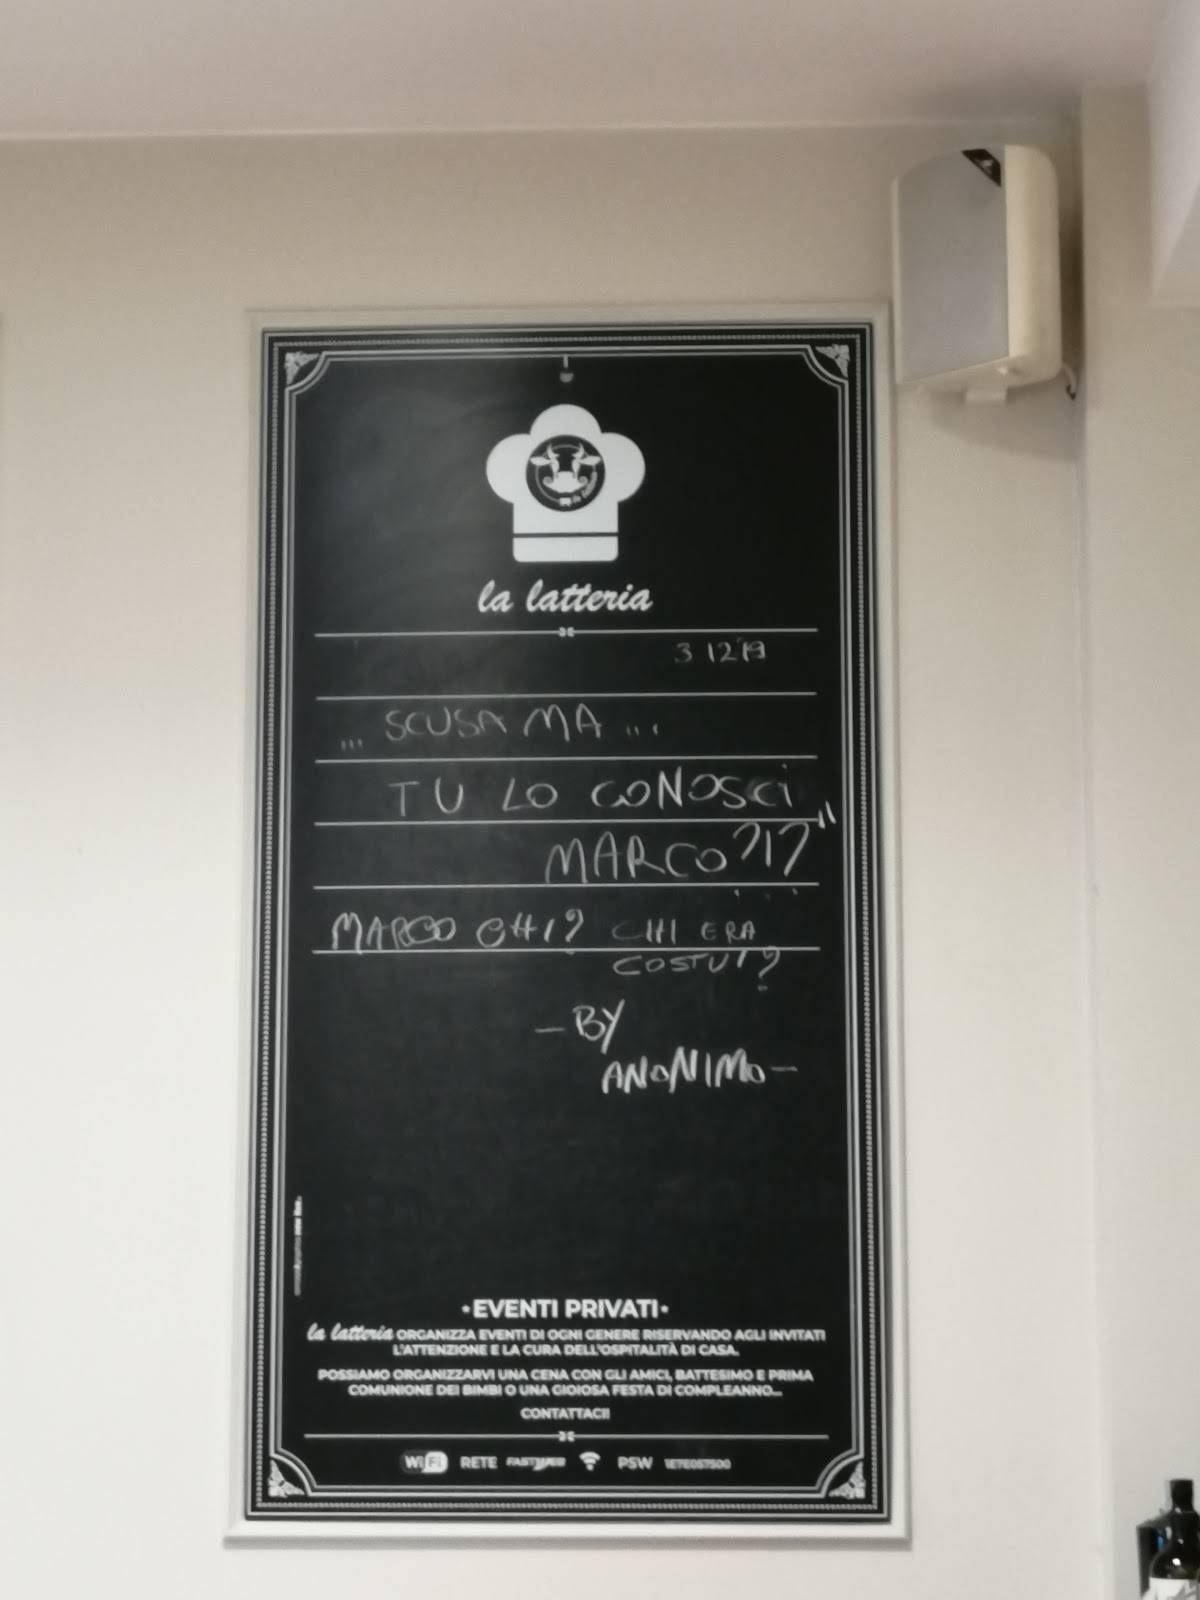 la latteria
3 12 19
... SCUSA MA ...
TU LO CONOSCI
MARCO?!?"
MARCO CHI? CHI ERA
COSTUI?
- BY
ANONIMO -
• EVENTI PRIVATI •
la latteria ORGANIZZA EVENTI DI OGNI GENERE RISERVANDO AGLI INVITATI
L'ATTENZIONE E LA CURA DELL'OSPITALITÀ DI CASA.
POSSIAMO ORGANIZZARVI UNA CENA CON GLI AMICI, BATTESIMO E PRIMA
COMUNIONE DEI BIMBI O UNA GIOIOSA FESTA DI COMPLEANNO...
CONTATTACI!
WiFi RETE FASTWEB PSW